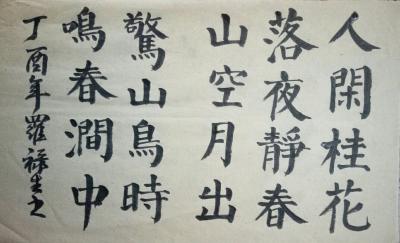 人閑桂花
落夜靜春
山空月出
驚山鳥時
鳴春澗中
丁酉年羅祿